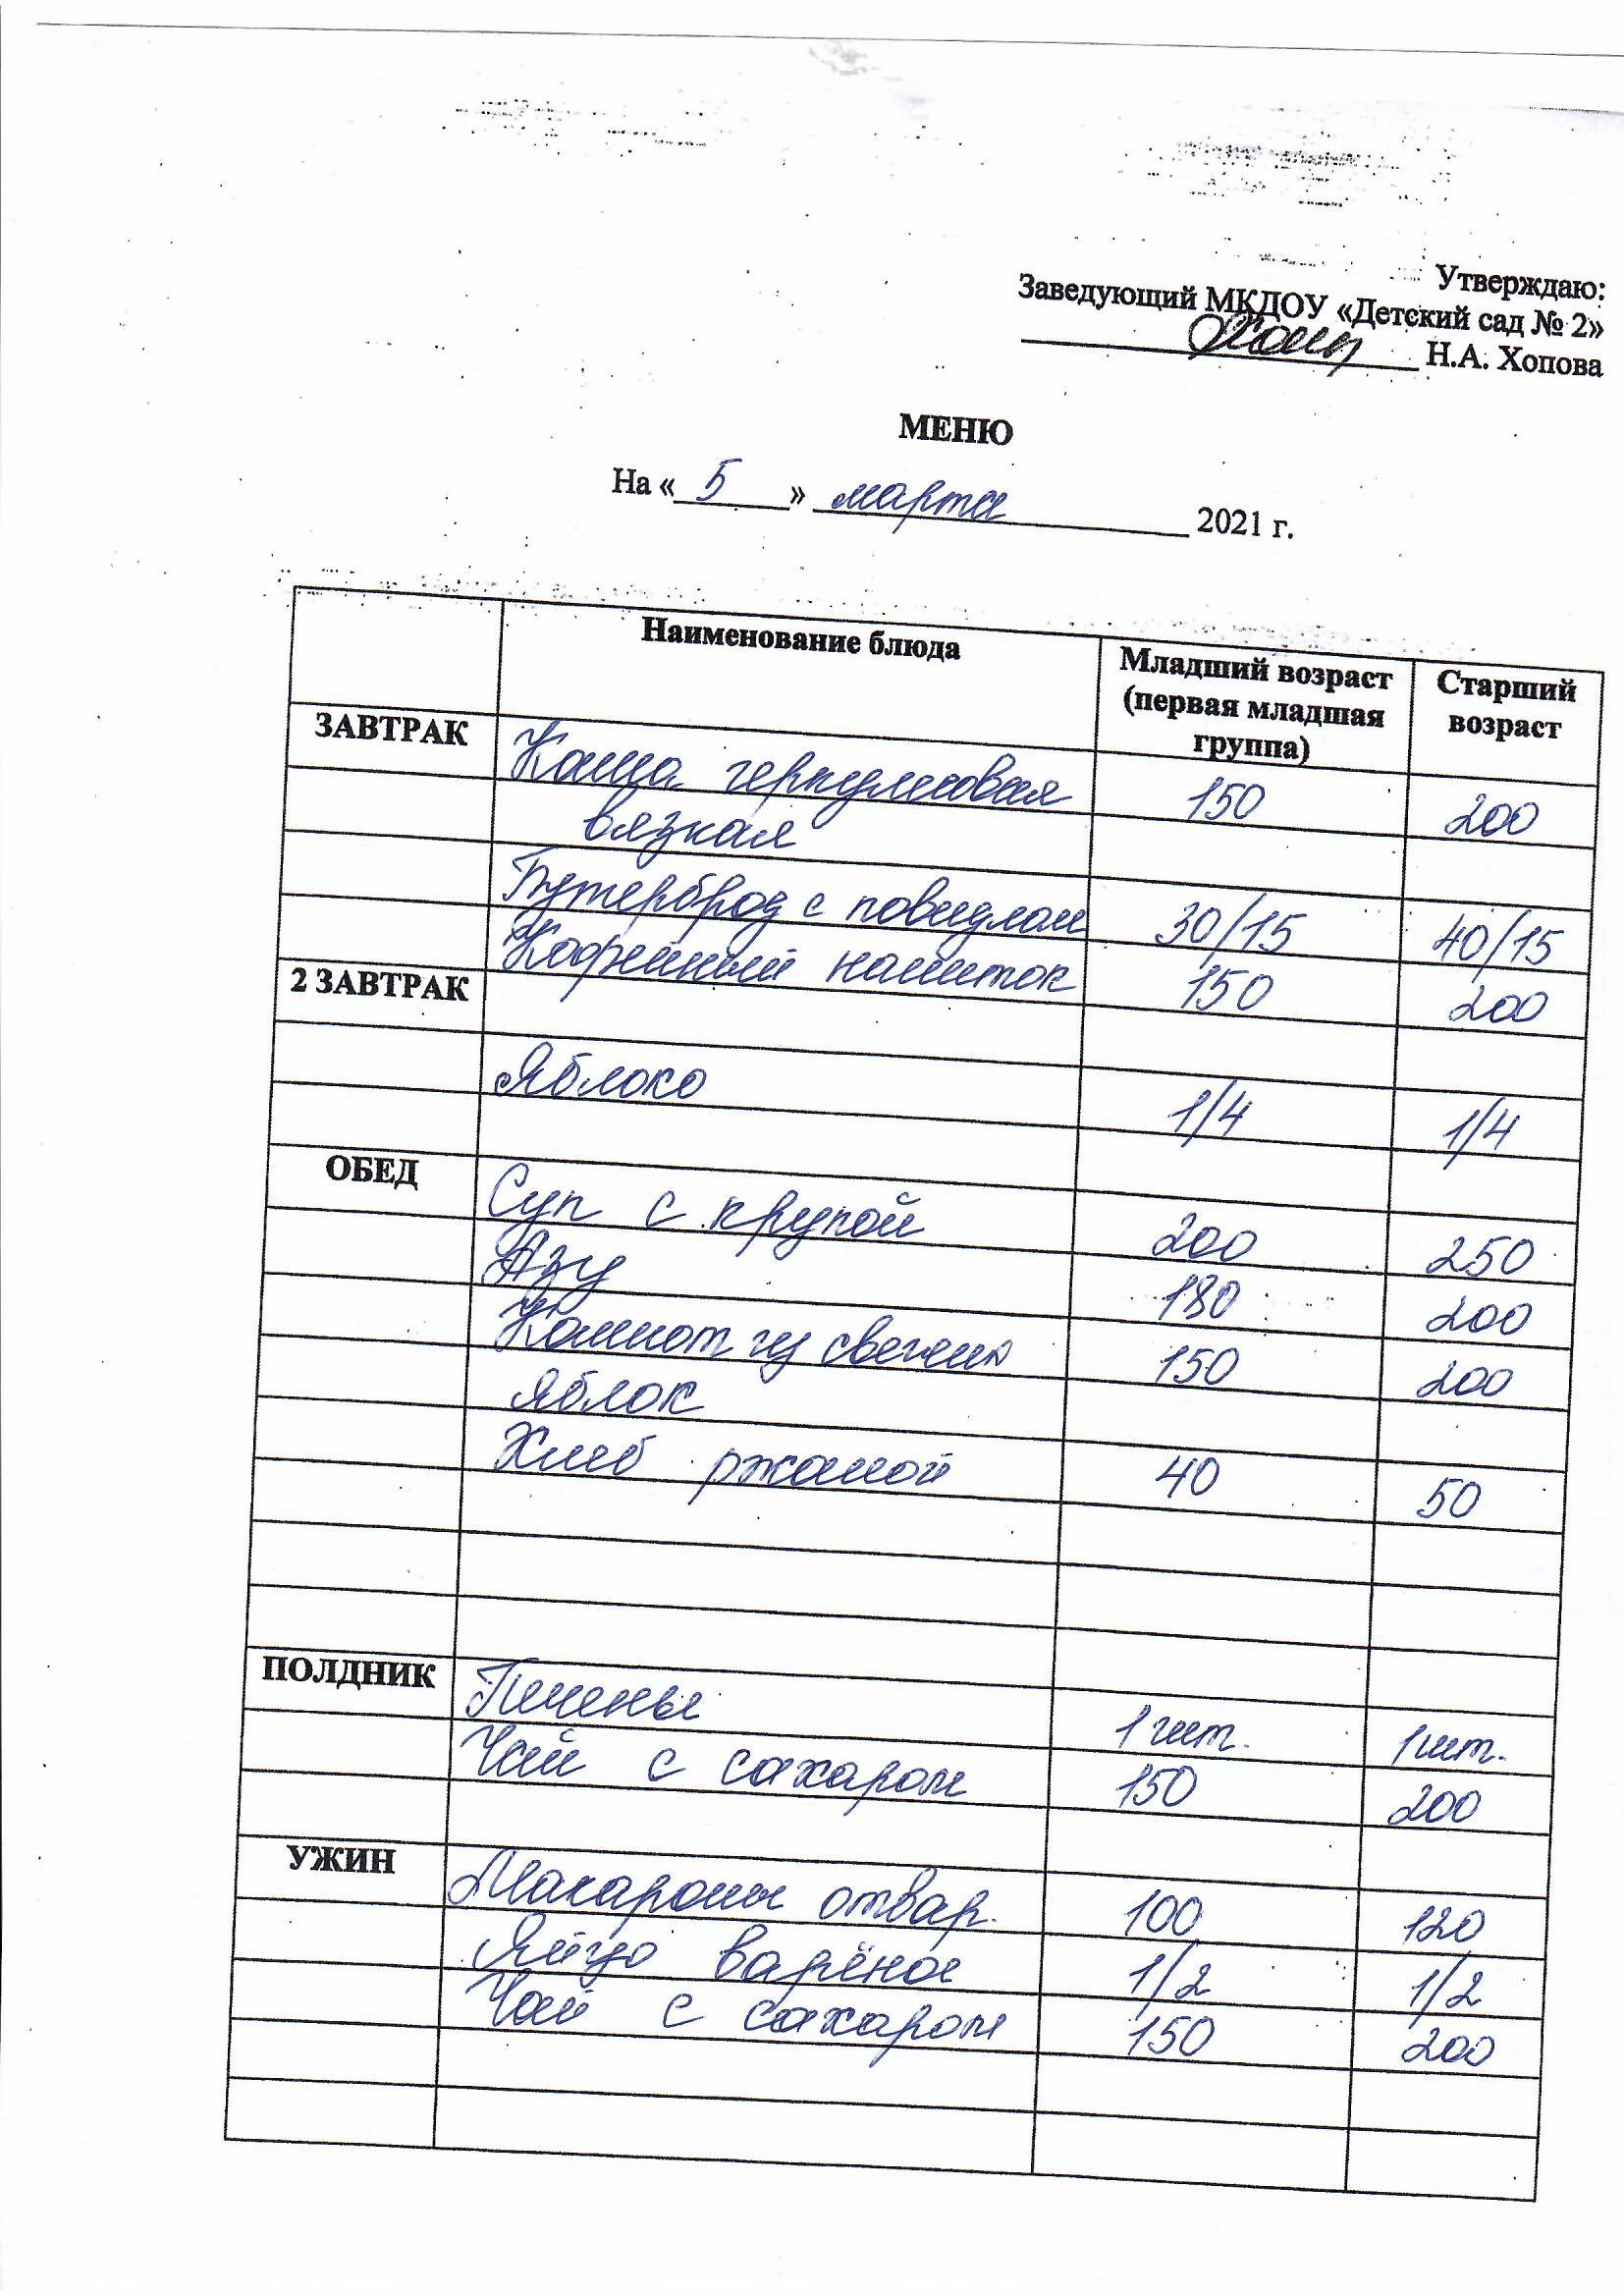 Утверждаю:
Заведующий МКДОУ «Детский сад № 2»
Н.А. Хопова
МЕНЮ
На « 5 » марта 2021 г.
Наименование блюда Младший возраст (первая младшая группа) Старший возраст
ЗАВТРАК Каша геркулесовая 150 200
вязкая
Бутерброд с повидлом 30/15 40/15
Кофейный напиток 150 200
2 ЗАВТРАК
Яблоко 1/4 1/4
ОБЕД Суп с крупой 200 250
Азу 180 200
Компот из свежих 150 200
яблок
Хлеб ржаной 40 50
ПОЛДНИК Печенье 1 шт. 1 шт.
Чай с сахаром 150 200
УЖИН Макароны отвар. 100 120
Яйцо варёное 1/2 1/2
Чай с сахаром 150 200